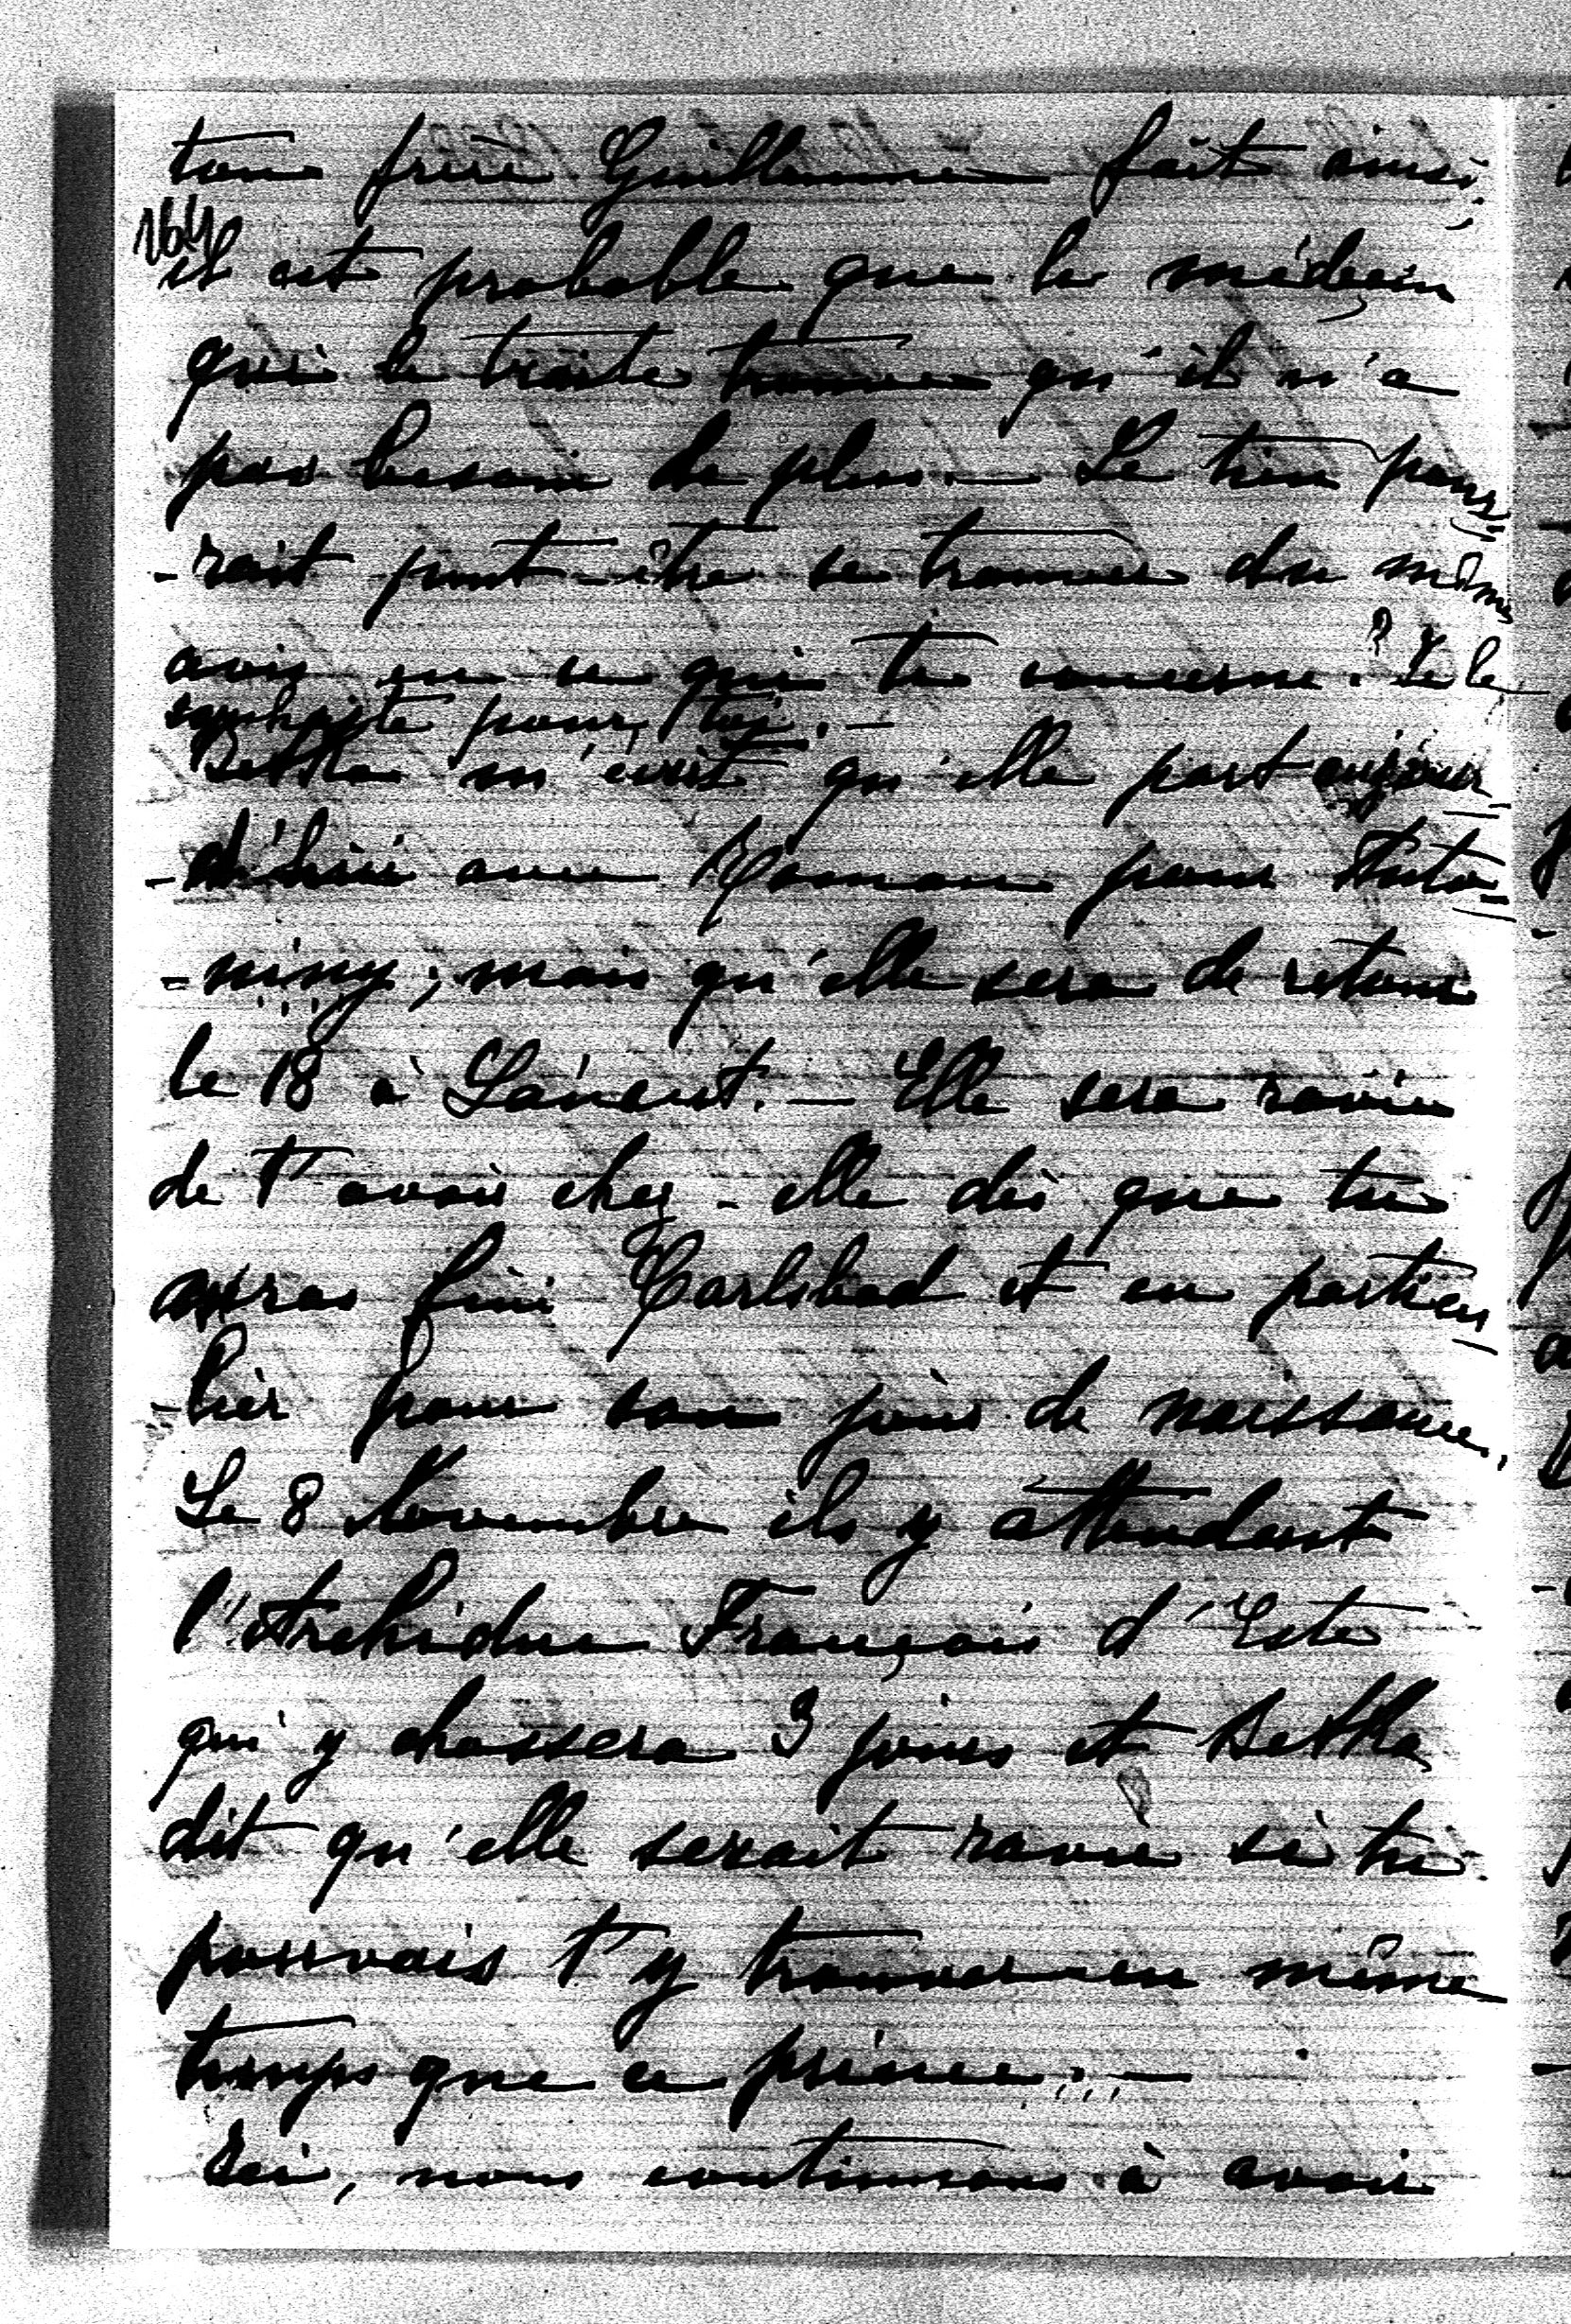 ton frère Guillaume fait ainsi;
164
il est probable que le médecin
qui le traite trouve qu'il n'a
pas besoin de plus. — Le tien pour=
-rait peut-être se trouver du même
avis en ce qui te concerne? Je le
souhaite pour toi. —
Betka m'écrit qu'elle part aujour-
-d'hui avec Roman pour Anto=
-niny; mais qu'elle sera de retour
le 18 à Łańcut. — Elle sera ravie
de t'avoir chez-elle dès que tu
auras fini Carlsbad et en particu-
-lier pour son jour de naissance.
Le 8 Novembre ils y attendent
l'Archiduc François d'Este
qui y chassera 3 jours et Betka
dit qu'elle serait ravie si tu
pouvais t'y trouver en même
temps que ce prince. —
Ici, nous continuons à avoir